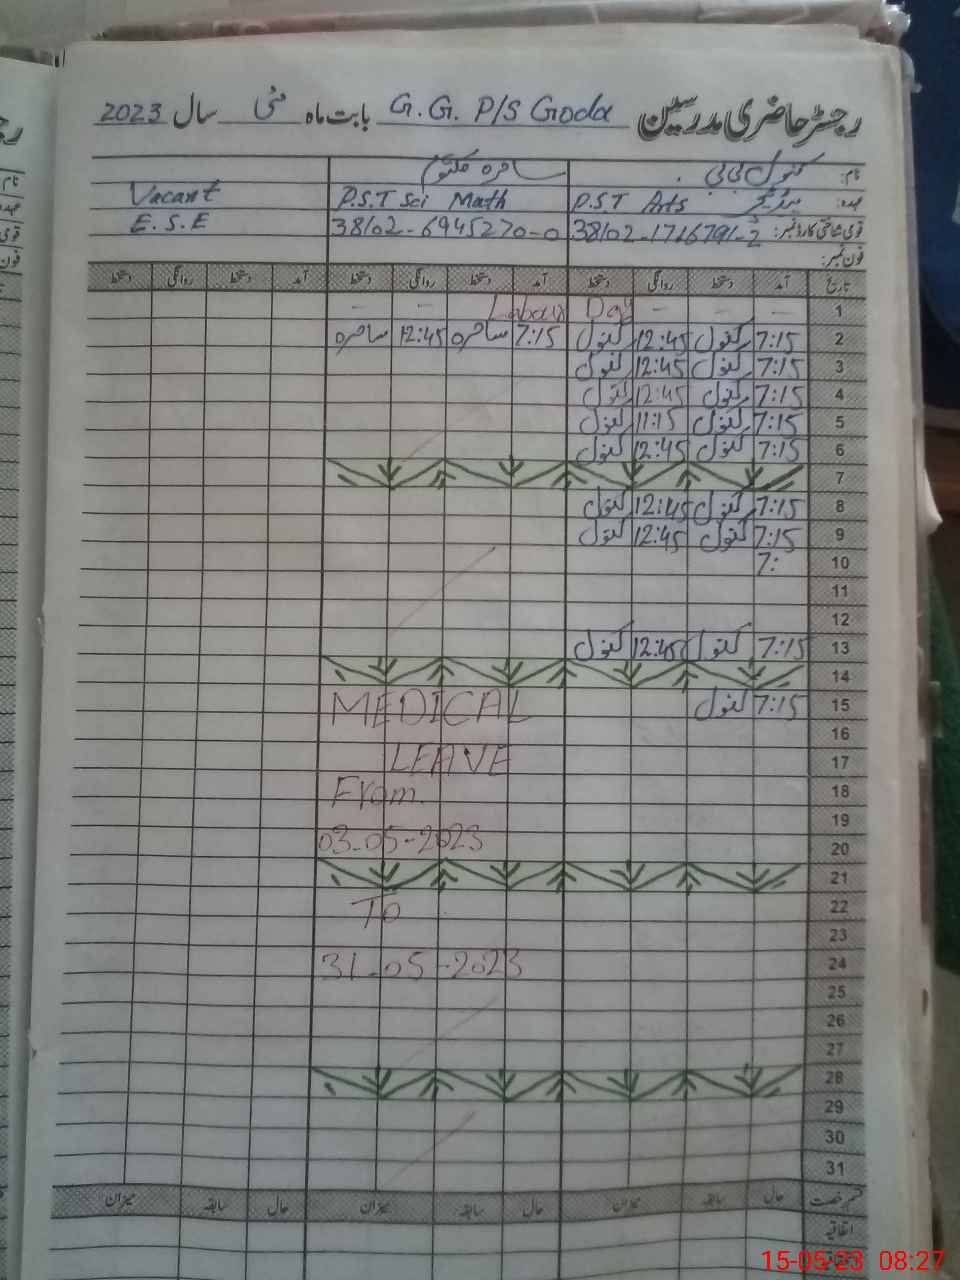 رجسٹر حاضری مدرسین G.G. P/S Goda بابت ماہ مئی سال 2023
نام: کنول بی بی ساحرہ مکتوم
عہدہ: P.S.T Arts P.S.T Sci Math Vacant
قومی شناختی کارڈ نمبر: 38102-1716791-2 38102-6945270-0 E.S.E
فون نمبر:
تاریخ آمد دستخط روانگی دستخط آمد دستخط روانگی دستخط آمد دستخط روانگی دستخط
1 - - - Labour Day - -
2 7:15 کنول 12:45 کنول 7:15 ساحرہ 12:45 ساحرہ
3 7:15 کنول 12:45 کنول
4 7:15 کنول 12:45 کنول
5 7:15 کنول 11:15 کنول
6 7:15 کنول 12:45 کنول
7
8 7:15 کنول 12:45 کنول
9 7:15 کنول 12:45 کنول
10 7:
11
12
13 7:15 کنول 12:45 کنول
14
15 7:15 کنول MEDICAL
16
17 LEAVE
18 From.
19
20 03-05-2023
21
22 To
23
24 31-05-2023
25
26
27
28
29
30
31
قسم رخصت حال سابقہ میزان حال سابقہ میزان حال سابقہ میزان
اتفاقیہ
15-05-23 08:27